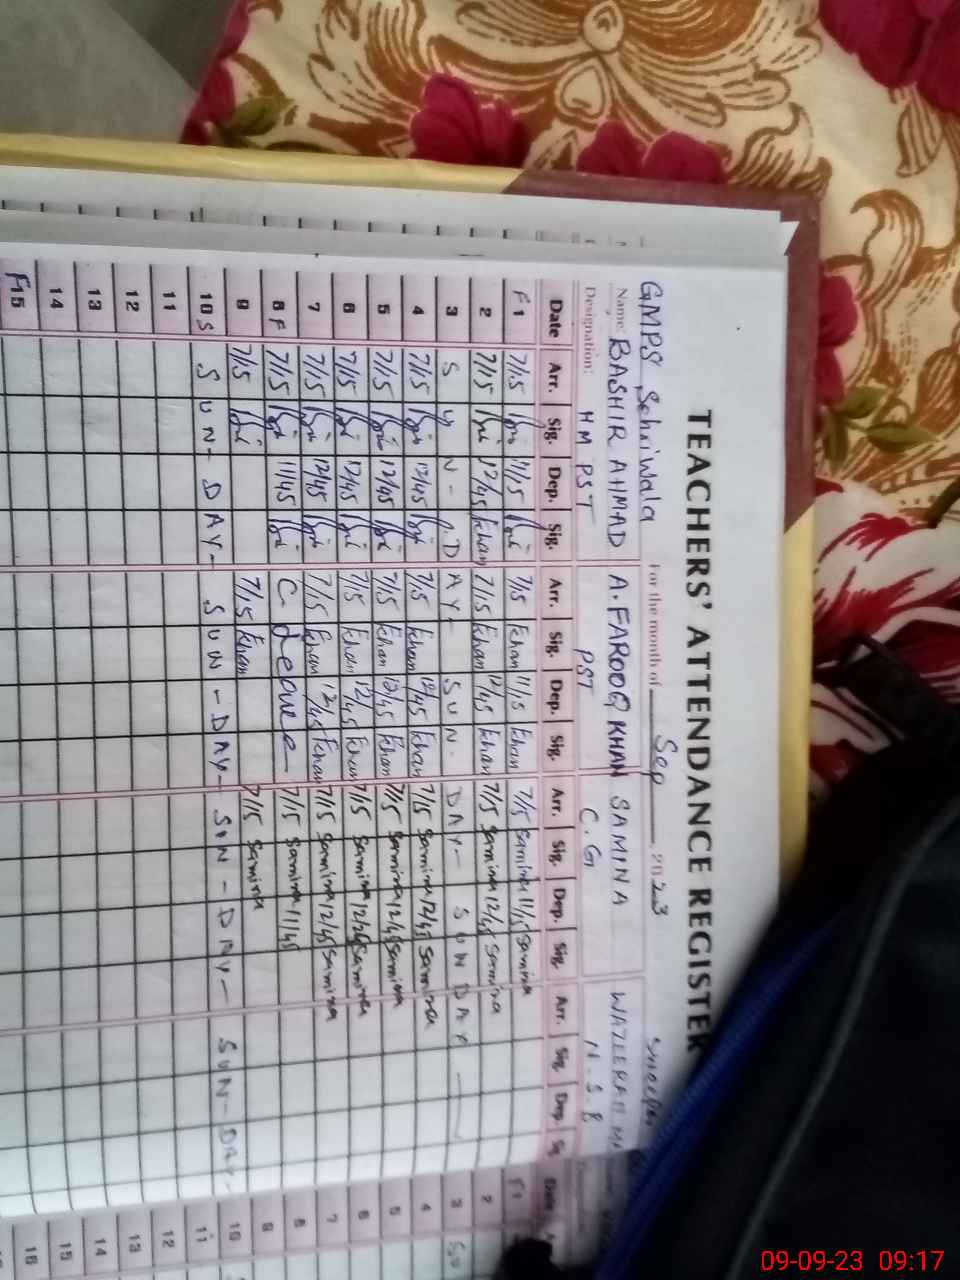 TEACHERS' ATTENDANCE REGISTER
GMPS Sehriwala For the month of Sep 2023
Name: BASHIR AHMAD A. FAROOQ KHAN SAMINA
Designation: HM PST PST C.G
Date Arr. Sig. Dep. Sig. Arr. Sig. Dep. Sig. Arr. Sig. Dep. Sig. Arr. Sig. Dep. Date
F 1 7/15 11/15 7/15 Khan 11/15 Khan 7/15 Samina 11/15 Samina F1
2 7/15 12/45 Khan 7/15 Khan 12/45 Khan 7/15 Samina 12/45 Samina 2
3 S U N - D A Y - S U N - D A Y - S U N D A Y 3
4 7/15 12/45 7/15 Khan 12/45 Khan 7/15 Samina 12/45 Samina 4
5 7/15 12/45 7/15 Khan 12/45 Khan 7/15 Samina 12/45 Samina 5
6 7/15 12/45 7/15 Khan 12/45 Khan 7/15 Samina Samina 6
7 7/15 12/45 7/15 Khan 12/45 Khan 7/15 Samina 12/45 Samina 7
8 F 7/15 11/45 C. Leave 7/15 Samina 11/45 8
9 7/15 7/15 Khan 7/15 Samina 9
10 S S U N - D A Y - S U N - D A Y - S U N - D A Y - S U N - D A Y - 10
11 11
12 12
13 13
14 14
F15 15
16
09-09-23 09:17